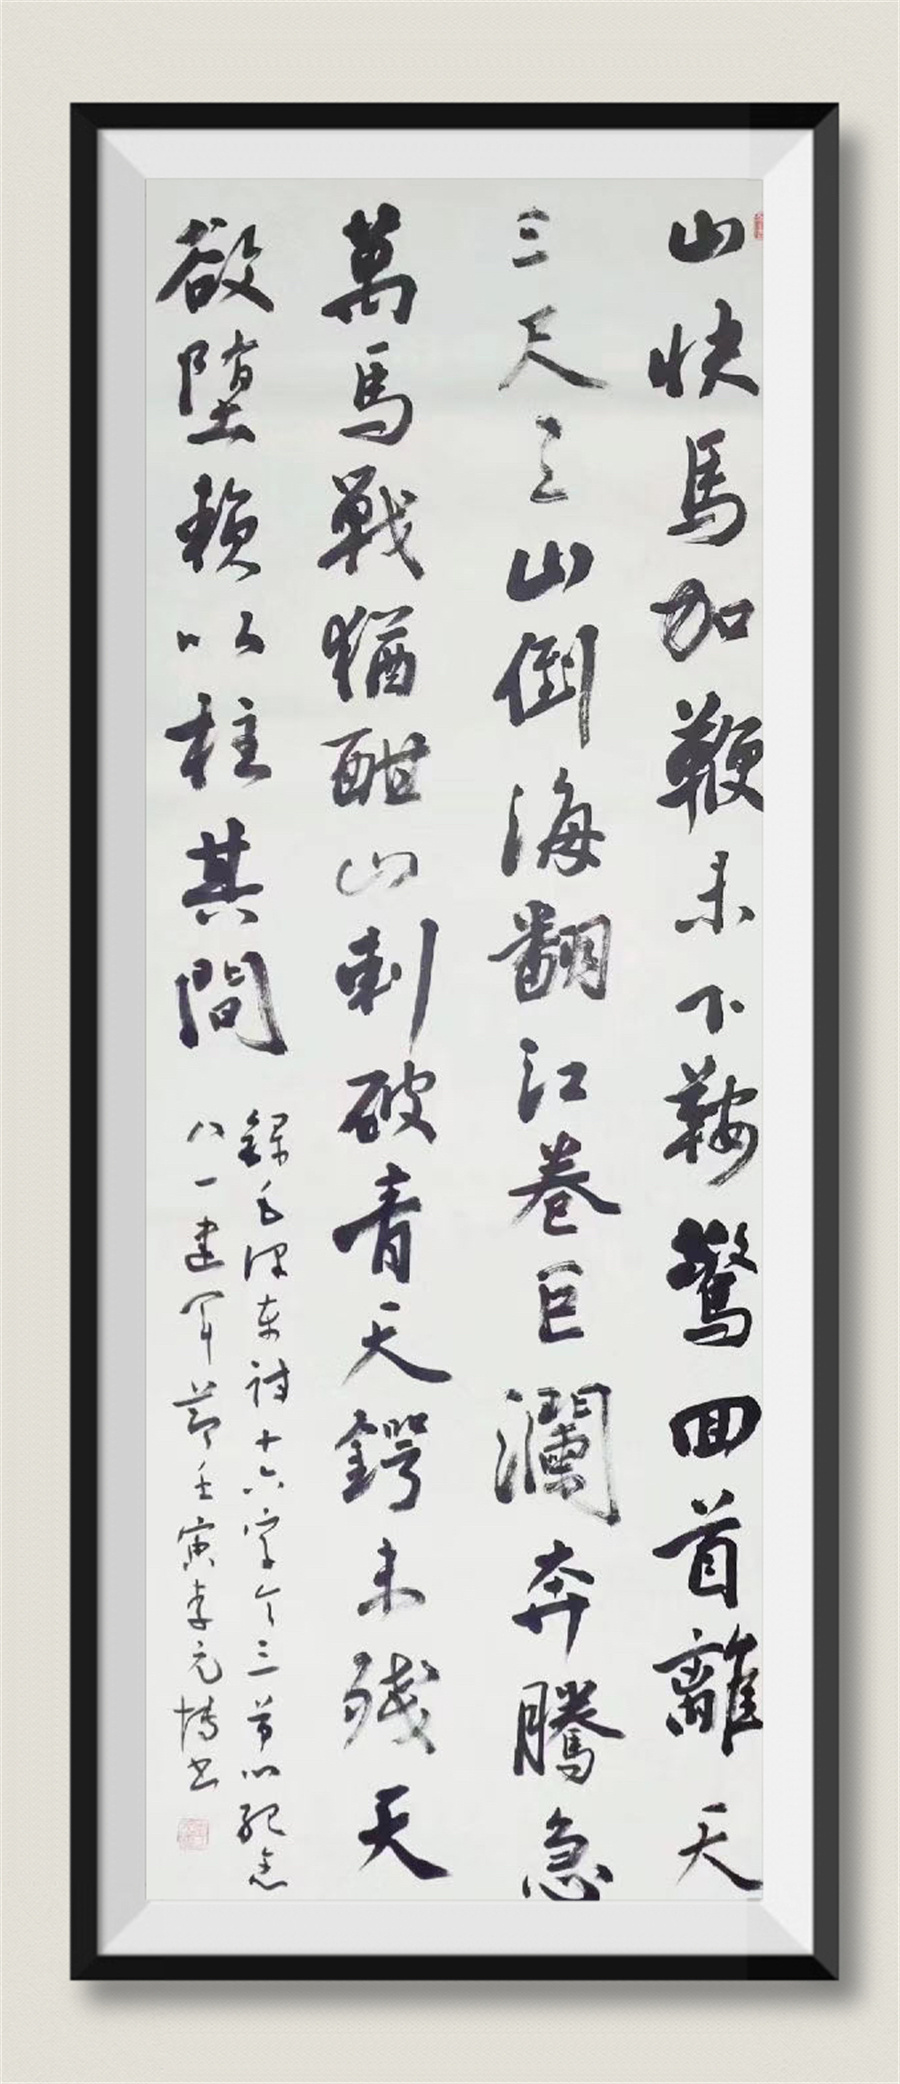 山快馬加鞭未下鞍驚回首離天
三尺三山倒海翻江卷巨瀾奔騰急
萬馬戰猶酣山刺破青天鍔未殘天
欲墮賴以柱其間
錄毛澤东詩十六字令三首以紀念
八一建军节壬寅李元博书